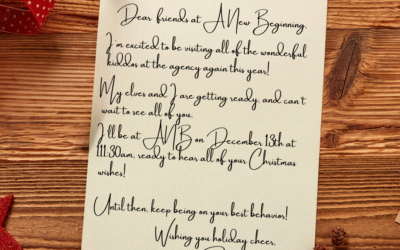 Dear friends at A New Beginning,
I'm excited to be visiting all of the wonderful
kiddos at the agency again this year!
My elves and I are getting ready, and can't
wait to see all of you.
I'll be at ANB on December 13th at
11:30am, ready to hear all of your Christmas
wishes!
Until then, keep being on your best behavior!
Wishing you holiday cheer,